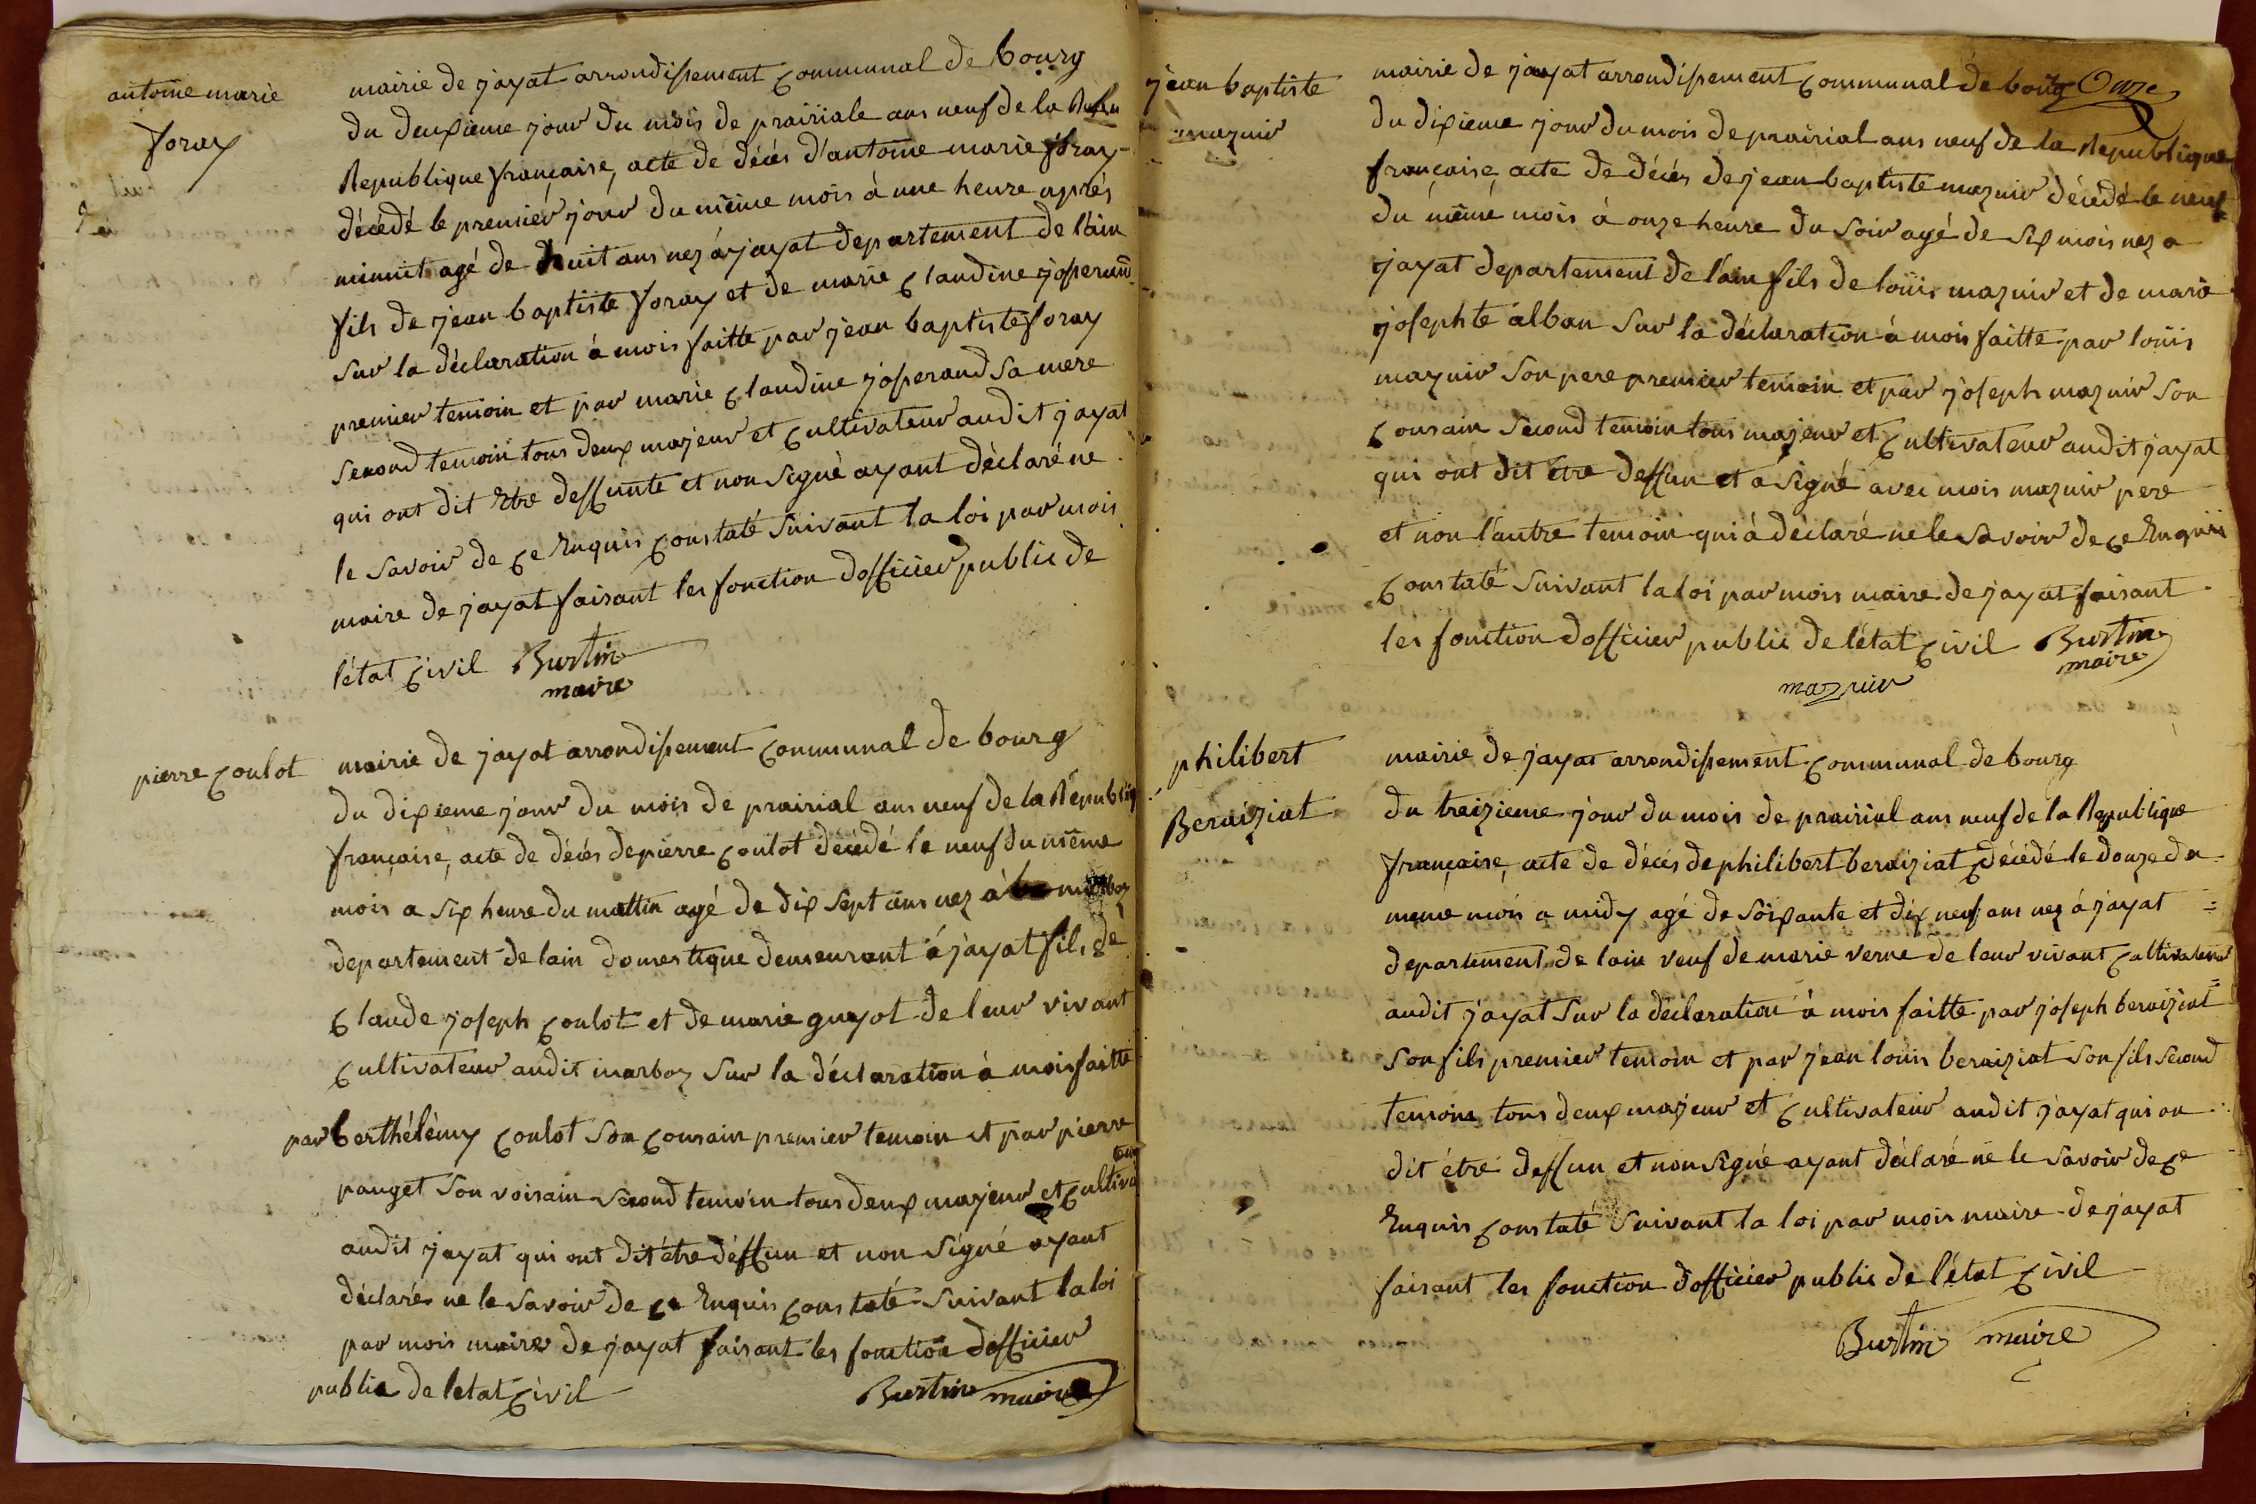 antoine marie
foray
mairie de jayat arrondissement communal de bourg
du deuxieme jour du mois de prairiale ans neuf de la
Republique française, acte de décés d'antoine marie foray
décédé le premier jour du même mois à une heure aprés
minuit agé de huit ans nez à jayat departement de l'ain
fils de jean baptiste foray et de marie claudine josserand
sur la déclaration à mois faitte par jean baptiste foray
premier temoin et par marie claudine josserand sa mere
second temoin tous deux majeur et cultivateur audit jayat
qui ont dit etre deffunte et non signé ayant déclaré ne
le savoir de ce enquis constaté suivant la loi par mois
maire de jayat faisant les fonction dofficier public de
létat civil Burtin
maire
pierre coulot
mairie de jayat arrondissement communal de bourg
du dixieme jour du mois de prairial ans neuf de la Républiq
française, acte de décés de pierre coulot décédé le neuf du même
mois a six heure du mattin agé de dix sept ans nez à marboz
departement de lain domestique demeurant à jayat fils de
claude joseph coulot et de marie guyot de leur vivant
cultivateur audit marboz sur la déclaration à mois faitte
par berthélémy coulot son cousain premier temoin et par pierre
pauget son voisain second temoin tous deux majeur et cultiva
teur
audit jayat qui ont dit étre déffun et non signé ayant
déclaré ne le savoir de ce enquis constaté suivant la loi
par mois maire de jayat faisant les fonction dofficier
public de letat civil Burtin maire
jean baptiste
mazuir
mairie de jayat arrondissement communal de bourg Onze
du dixieme jour du mois de prairial ans neuf de la Republique
française, acte de décés de jean baptiste mazuir décédé le neuf
du même mois à onze heure du soir agé de six mois nez a
jayat departement de l'ain fils de louis mazuir et de marie
josephte alban sur la déclaration à mois faitte par louis
mazuir son pere premier temoin et par joseph mazuir son
cousain second temoin tous majeur et cultivateur audit jayat
qui ont dit étre deffun et a signé avec mois mazuir pere
et non l'autre temoin qui à déclaré ne le savoir de ce enquis
constaté suivant la loi par mois maire de jayat faisant
les fonction dofficier public de létat civil Burtin
maire
mazuir
philibert
Beraiziat
mairie de jayat arrondissement communal de bourg
du traizieme jour du mois de prairial ans neuf de la Republique
française, acte de décés de philibert beraiziat décédé le douze du
meme mois a midy agé de soixante et dix neuf ans nez à jayat
departement de lain veuf de marie verne de leur vivant cultivateur
audit jayat sur la déclaration à mois faitte par joseph beraiziat
son fils premier temoin et par jean louis beraiziat son fils second
temoins tous deux majeur et cultivateur audit jayat qui on
dit étre deffun et non signé ayant déclaré ne le savoir de ce
enquis constaté suivant la loi par mois maire de jayat
faisant les fonction dofficier public de létat civil
Burtin maire